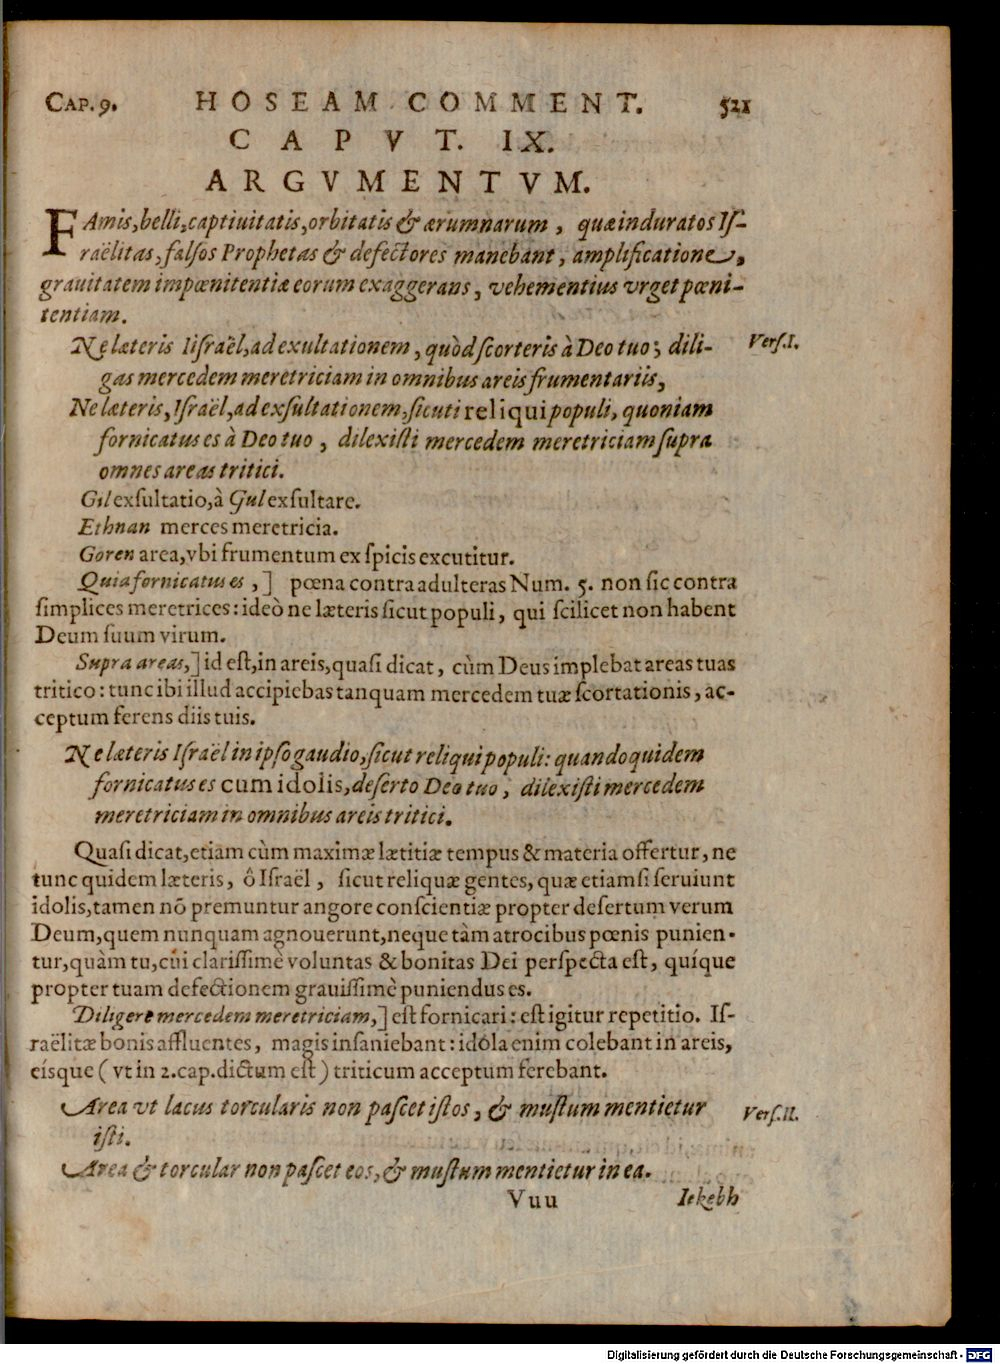 CAP. 9. HOSEAM COMMENT. 521
CAPVT. IX.
ARGVMENTVM.
FAmis, belli, captiuitatis, orbitatis & ærumnarum, quæ induratos Iſ-
raëlitas, falſos Prophetas & defectores manebant, amplificatione,
grauitatem impœnitentiæ eorum exaggerans, vehementius vrget pœni-
tentiam.
Ne læteris Iiſraël, ad exultationem, quòd ſcorteris à Deo tuo; dili- Verſ. I.
gas mercedem meretriciam in omnibus areis frumentariis,
Ne læteris, Iſraël, ad exſultationem, ſicuti reliqui populi, quoniam
fornicatus es à Deo tuo, dilexiſti mercedem meretriciam ſupra
omnes areas tritici.
Gil exſultatio, à Gul exſultare.
Ethnan merces meretricia.
Goren area, vbi frumentum ex ſpicis excutitur.
Quia fornicatus es,] pœna contra adulteras Num. 5. non ſic contra
ſimplices meretrices: ideò ne læteris ſicut populi, qui ſcilicet non habent
Deum ſuum virum.
Supra areas,] id eſt, in areis, quaſi dicat, cùm Deus implebat areas tuas
tritico: tunc ibi illud accipiebas tanquam mercedem tuæ ſcortationis, ac-
ceptum ferens diis tuis.
Ne læteris Iſraël in ipſo gaudio, ſicut reliqui populi: quandoquidem
fornicatus es cum idolis, deſerto Deo tuo, dilexiſti mercedem
meretriciam in omnibus areis tritici.
Quaſi dicat, etiam cùm maximæ lætitiæ tempus & materia offertur, ne
tunc quidem læteris, ô Iſraël, ſicut reliquæ gentes, quæ etiamſi ſeruiunt
idolis, tamen nō premuntur angore conſcientiæ propter deſertum verum
Deum, quem nunquam agnouerunt, neque tàm atrocibus pœnis punien-
tur, quàm tu, cùi clariſſimè voluntas & bonitas Dei perſpecta eſt, quíque
propter tuam defectionem grauiſſimè puniendus es.
Diligere mercedem meretriciam,] eſt fornicari: eſt igitur repetitio. Iſ-
raëlitæ bonis affluentes, magis inſaniebant: idóla enim colebant in areis,
eísque (vt in 2. cap. dictum eſt) triticum acceptum ferebant.
Area vt lacus torcularis non paſcet iſtos, & muſtum mentietur Verſ. II.
iſti.
Area & torcular non paſcet eos, & muſtum mentietur in ea.
Vuu Iekebh
Digitalisierung gefördert durch die Deutsche Forschungsgemeinschaft - DFG